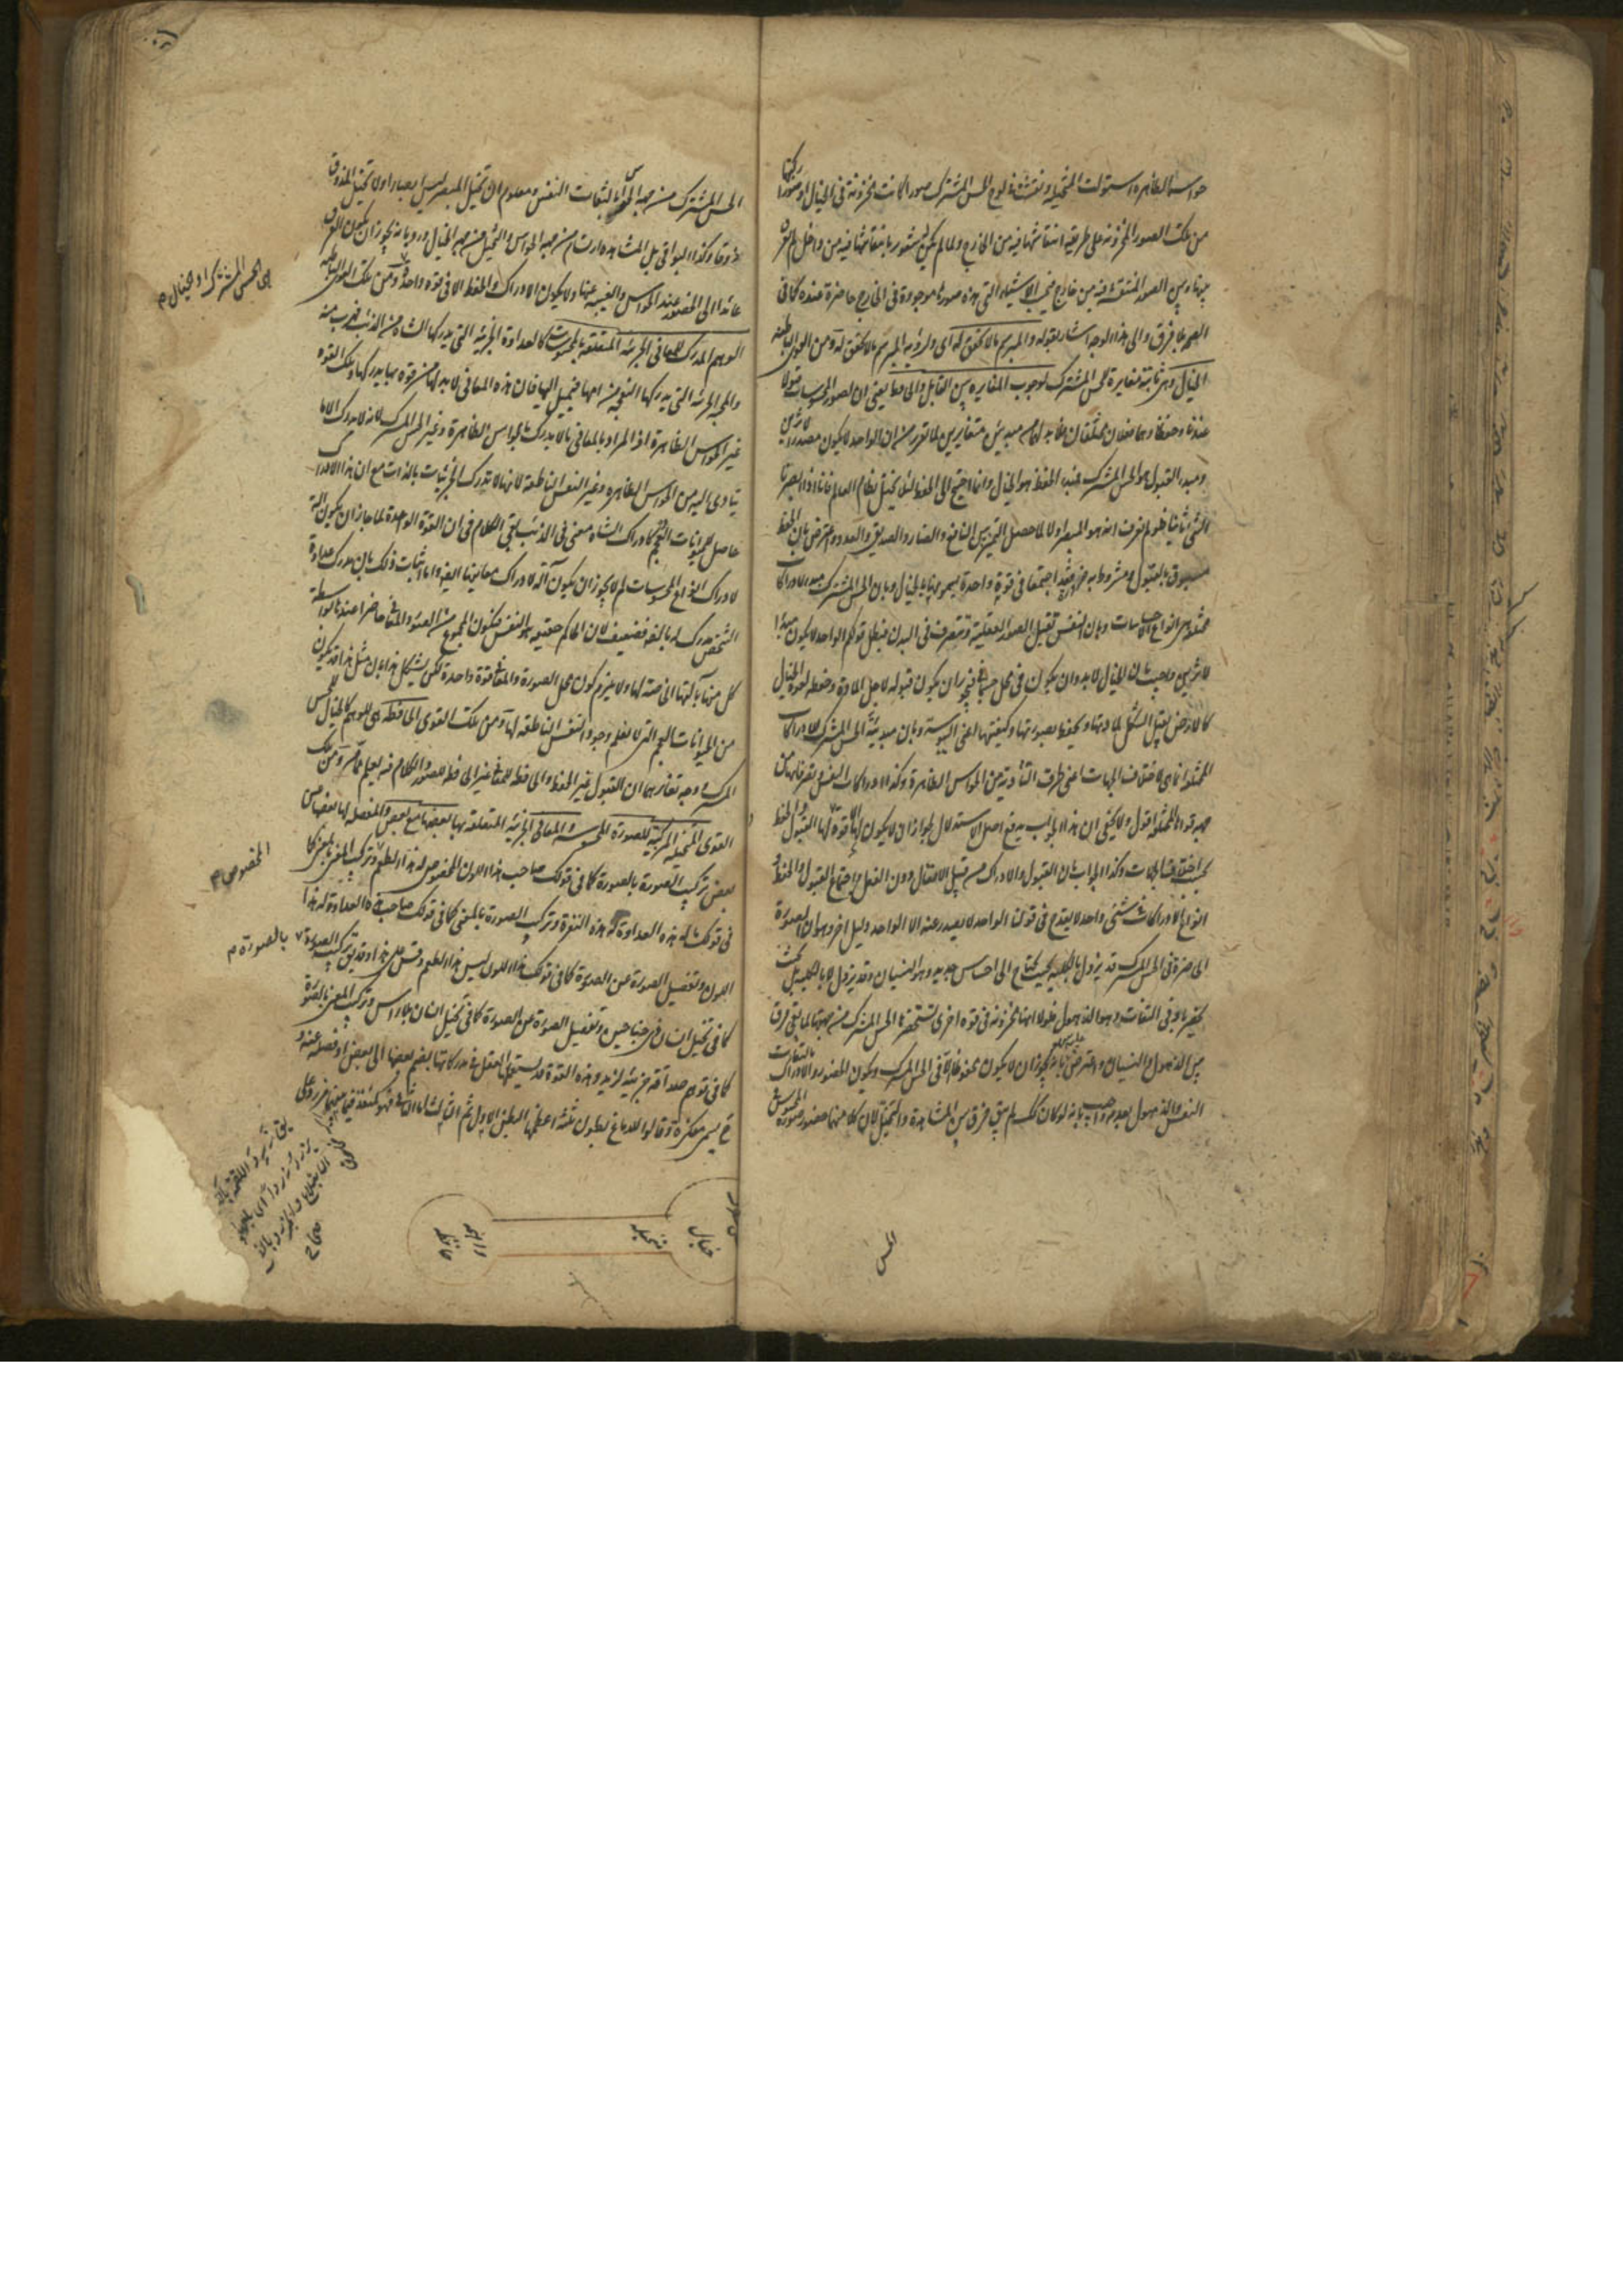 حواسه الظاهرة استولت المتخيلة ونقشت في لوح الحس المشترك صورا كانت مخزونة في الخيال او صورا ركبتها
من تلك الصور المخزونة على طريقة انتقاشها فيه من الخارج ولما لم يكن لها شعور بانتقاشها فيه من داخل لم تفرق
بينها وبين الصور المنتقشة فيه من خارج فيحسب الاشياء التي هذه صورها موجودة في الخارج حاضرة عنده كما في
الصحة بلا فرق والى هذا الوجه اشار بقوله والمبرسم ما لا تحقق له اى ولرؤية المبرسم ما لا تحقق له ومن القوى الباطنة
الخيال وهي ثابتة مغايرة للحس المشترك لوجوب المغايرة بين القابل والحافظ يعني ان لصور المحسوسات قبولا
عندنا وحفظا وهما فعلان مختلفان فلا بد لهما من مبدئين متغايرين لما تقرر من ان الواحد لا يكون مصدر لاثرين
ومبدء القبول هو الحس المشترك فمبدء الحفظ هو الخيال وانما احتيج الى الحفظ لئلا يختل نظام العالم فانا اذا ابصرنا
الشئ ثانيا فلو لم نعرف انه هو المبصر اولا لما حصل التميز بين النافع والضار والصديق والعدو واعترض بان الحفظ
مسبوق بالقبول ومشروط به ضرورة فقد اجتمعا في قوة واحدة سميتموها بالخيال وبان الحس المشترك مبدء لادراكات
مختلفة هي انواع الاحساسات وبان النفس تقبل الصور العقلية وتتصرف في البدن فبطل قولكم الواحد لا يكون مبدءا
لاثرين واجيب بان الخيال لا بد وان يكون في محل جسماني فيجوز ان يكون قبوله لاجل المادة وحفظه لقوة الخيال
كالارض يقبل الشكل لمادتها ويحفظه بصورتها وكيفيتها اعني اليبوسة وبان مبدئية الحس المشترك للادراكات
المختلفة انما هي لاختلاف الجهات اعني طرق التأدية من الحواس الظاهرة وكذا ادراكات النفس وتصرفاتها من
جهة قواها المختلفة اقول ولا يخفى ان هذا الجواب يدفع اصل الاستدلال لجواز ان لا يكون الا قوة لها القبول والحفظ
بحسب اختلاف الجهات وكذا الجواب بان القبول والادراك من قبيل الانفعال دون الفعل واجتماع القبول والحفظ
انواع الادراكات في شئ واحد لا يقدح في قولنا الواحد لا يصدر عنه الا الواحد دليل اخر وهو ان الصورة
الحاضرة في الحس المشترك قد يزول بالكلية بحيث يحتاج الى احساس جديد وهو النسيان وقد يزول لا بالكلية بل بحيث
يحضر بادنى التفات وهو الذهول فلولا انها مخزونة في قوة اخرى تستحضرها الحس المشترك من جهتها لما بقي فرق
بين الذهول والنسيان واعترض عليه بانه يجوز ان لا يكون محفوظا الا في الحس المشترك ويكون الحضور والادراك بالتفات
النفس والذهول بعدمه واجيب بانه لو كان كذلك لم يبق فرق بين المشاهدة والتخيل لان كلا منهما حضور صورة المحسوس
الحس
الحس المشترك من جهة الحواس بالتفات النفس ومعلوم ان تخيل المبصر ليس ابصارا ولا تخيل المذوق
ذوقا وكذا البواقي بل المشاهدة ادراك من جهة الحواس والتخيل من جهة الخيال ورد بانه يجوز ان يكون الفرق
عائدا الى الحضور عند الحواس والغيبة عنها ولا يكون الادراك والحفظ الا في قوة واحدة ومن تلك القوى الباطنة
اى الحس المشترك او الخيال م
الوهم المدرك للمعاني الجزئية المتعلقة بالمحسوسات كالعداوة الجزئية التي يدركها الشاة من الذئب فيهرب منه
والمحبة الجزئية التي يدركها السخلة من امها فيميل اليها فان هذه المعاني لا بد لها من قوة بها يدركها وتلك القوة
غير الحواس الظاهرة اذ المراد بالمعاني ما لا يدرك بالحواس الظاهرة وغير الحس المشترك لانه لا يدرك الا ما
يتادى اليه من الحواس الظاهرة وغير النفس الناطقة لانها لا تدرك الجزئيات بالذات مع ان هذا الادراك
حاصل للحيوانات العجم كادراك الشاة معنى في الذئب بقي الكلام في ان القوة الواحدة لما جاز ان يكون آلة
لادراك انواع المحسوسات لم لا يجوز ان يكون آلة لادراك معانيها ايضا واما اثبات ذلك بان مدرك عداوة
الشخص مدرك له بالضرورة فضعيف لان الحاكم حقيقة هو النفس فيكون المجموع من الصور والمعاني حاضرا عندها بواسطة
كل منهما بآلتها الخاصة لها ولا يلزم كون محل الصورة والمعاني قوة واحدة لكن يشكل هذا بان مثل هذا قد يكون
من الحيوانات العجم التي لا نعلم وجود النفس الناطقة لها ومن تلك القوى الحافظة هي للوهم كالخيال للحس
المشترك ووجه تغايرهما ان القبول غير الحفظ والحافظ للمعاني غير الحافظ للصور والكلام فيه يعلم مما مر ومن تلك
القوى المتخيلة المركبة للصورة المحسوسة والمعاني الجزئية المتعلقة بها بعضها مع بعض والمفصلة لها بعضها من
بعض تركيب الصورة بالصورة كما في قولك صاحب هذا اللون المخصوص له هذا الطعم وتركيب المعنى بالمعنى كما
المخصوص م
في قولك ما له هذه العداوة له هذه النفرة وتركيب الصورة بالمعنى كما في قولك صاحب هذه العداوة له هذا
اللون وتفصيل الصورة عن الصورة كما في قولك هذا اللون ليس هذا الطعم وقس على هذا وقد يق تركيب الصورة
بالصورة م
كما في تخيل انسان ذي جناحين وتفصيل الصورة عن الصورة كما في تخيل انسان بلا راس وتركيب المعنى بالصورة
كما في توهم صداقة جزئية لزيد وهذه القوة قد يستعملها العقل في مدركاتها بضم بعضها الى بعض او فصله عنه و
ح يسمى مفكرة وقالوا للدماغ بطون ثلثة اعظمها البطن الاول ثم الثالث واما الثاني فهو كمنفذ فيما بينهما
خيال
متخيلة
صحاح